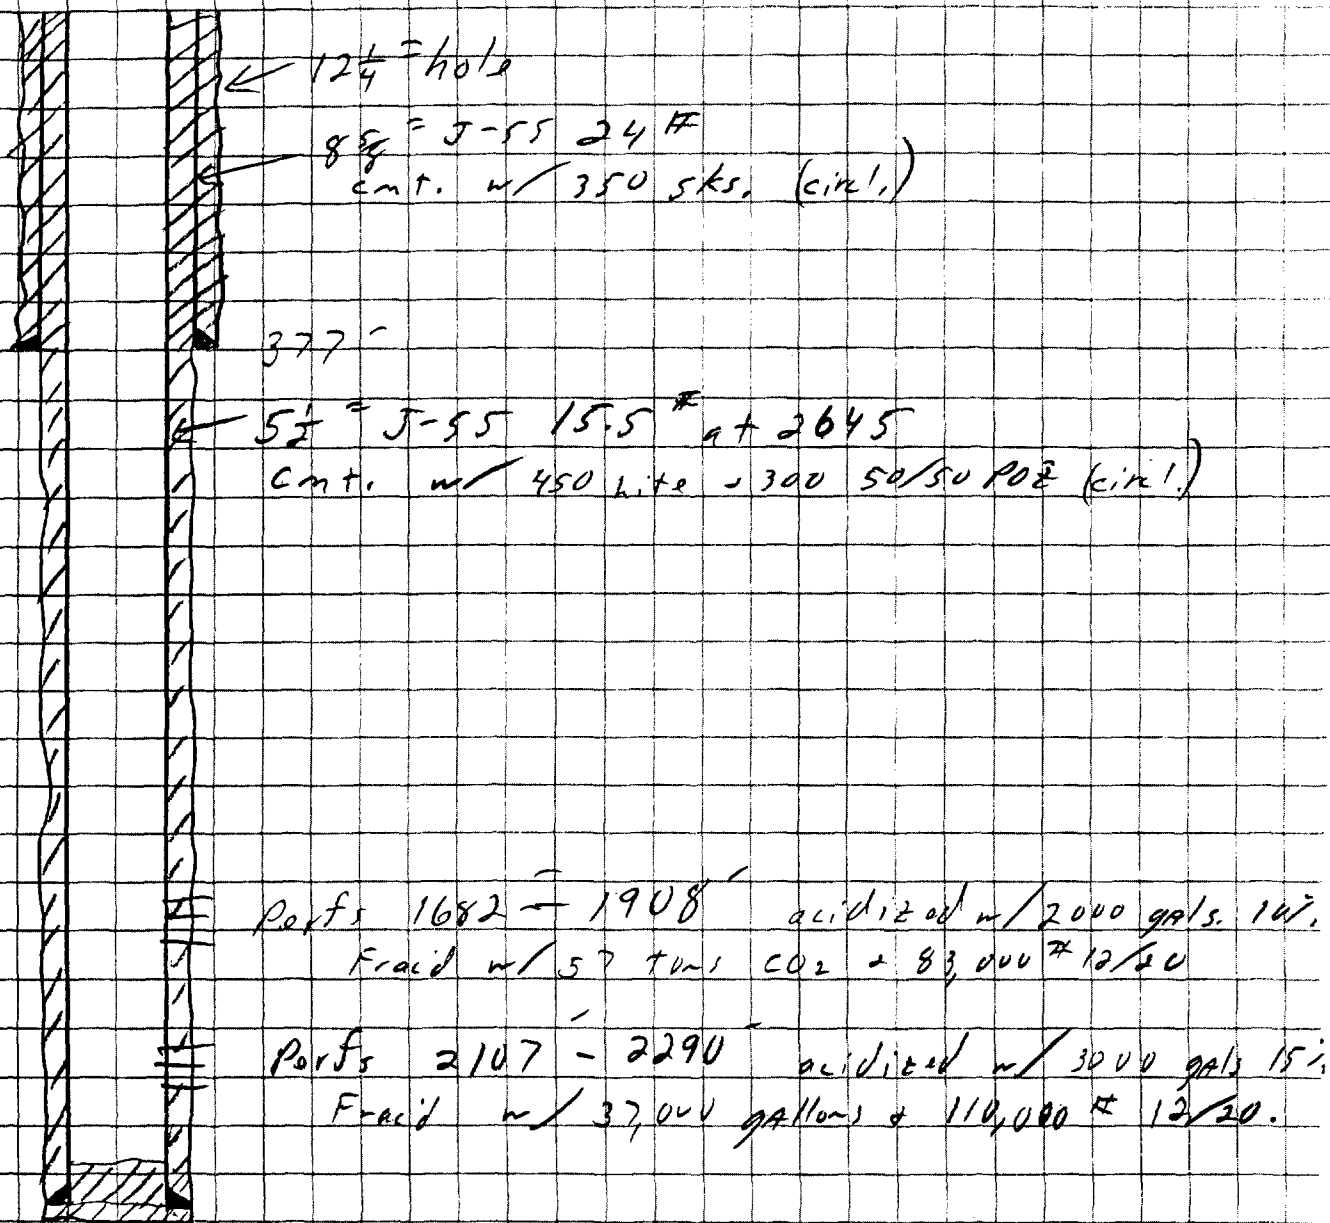 12 1/4" hole
8 5/8" J-55 24#
cmt. w/ 350 sks. (circ'.)
377'
5 1/2" J-55 15.5# at 2645
Cmt. w/ 450 Lite + 300 50/50 POZ (circ'.)
Perfs 1682' - 1908' acidized w/ 2000 gals. 10%
Frac'd w/ 57 tons CO2 + 83,000# 12/20
Perfs 2107' - 2290' acidized w/ 3000 gals 15%
Frac'd w/ 37,000 gallons + 110,000# 12/20.